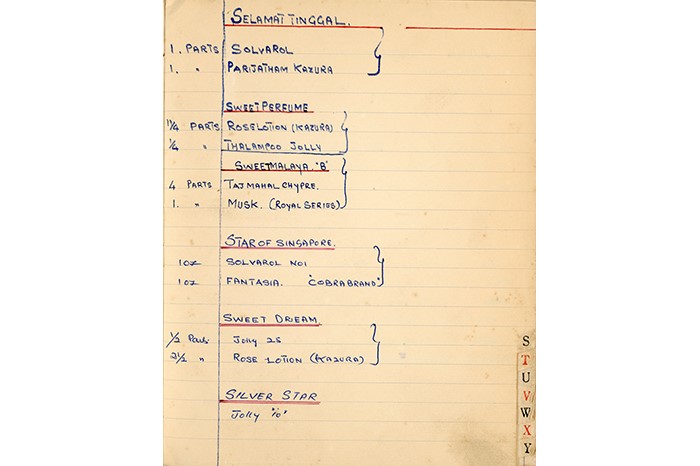 SELAMAT TINGGAL.
1. PARTS SOLVAROL
1. " PARIJATHAM KAZURA
SWEET PERFUME
1 1/4 PARTS ROSE LOTION (KAZURA)
1/4 " THALAMPOO JOLLY
SWEET MALAYA. 'B'
4 PARTS TAJ MAHAL CHYPRE.
1. " MUSK. (ROYAL SERIES)
STAR OF SINGAPORE.
1 OZ SOLVAROL NO1
1 OZ FANTASIA. "COBRA BRAND"
SWEET DREAM.
1/2 Parts Jolly 25
2 1/2 " ROSE LOTION (KAZURA)
SILVER STAR
Jolly '10'
S
T
U
V
W
X
Y